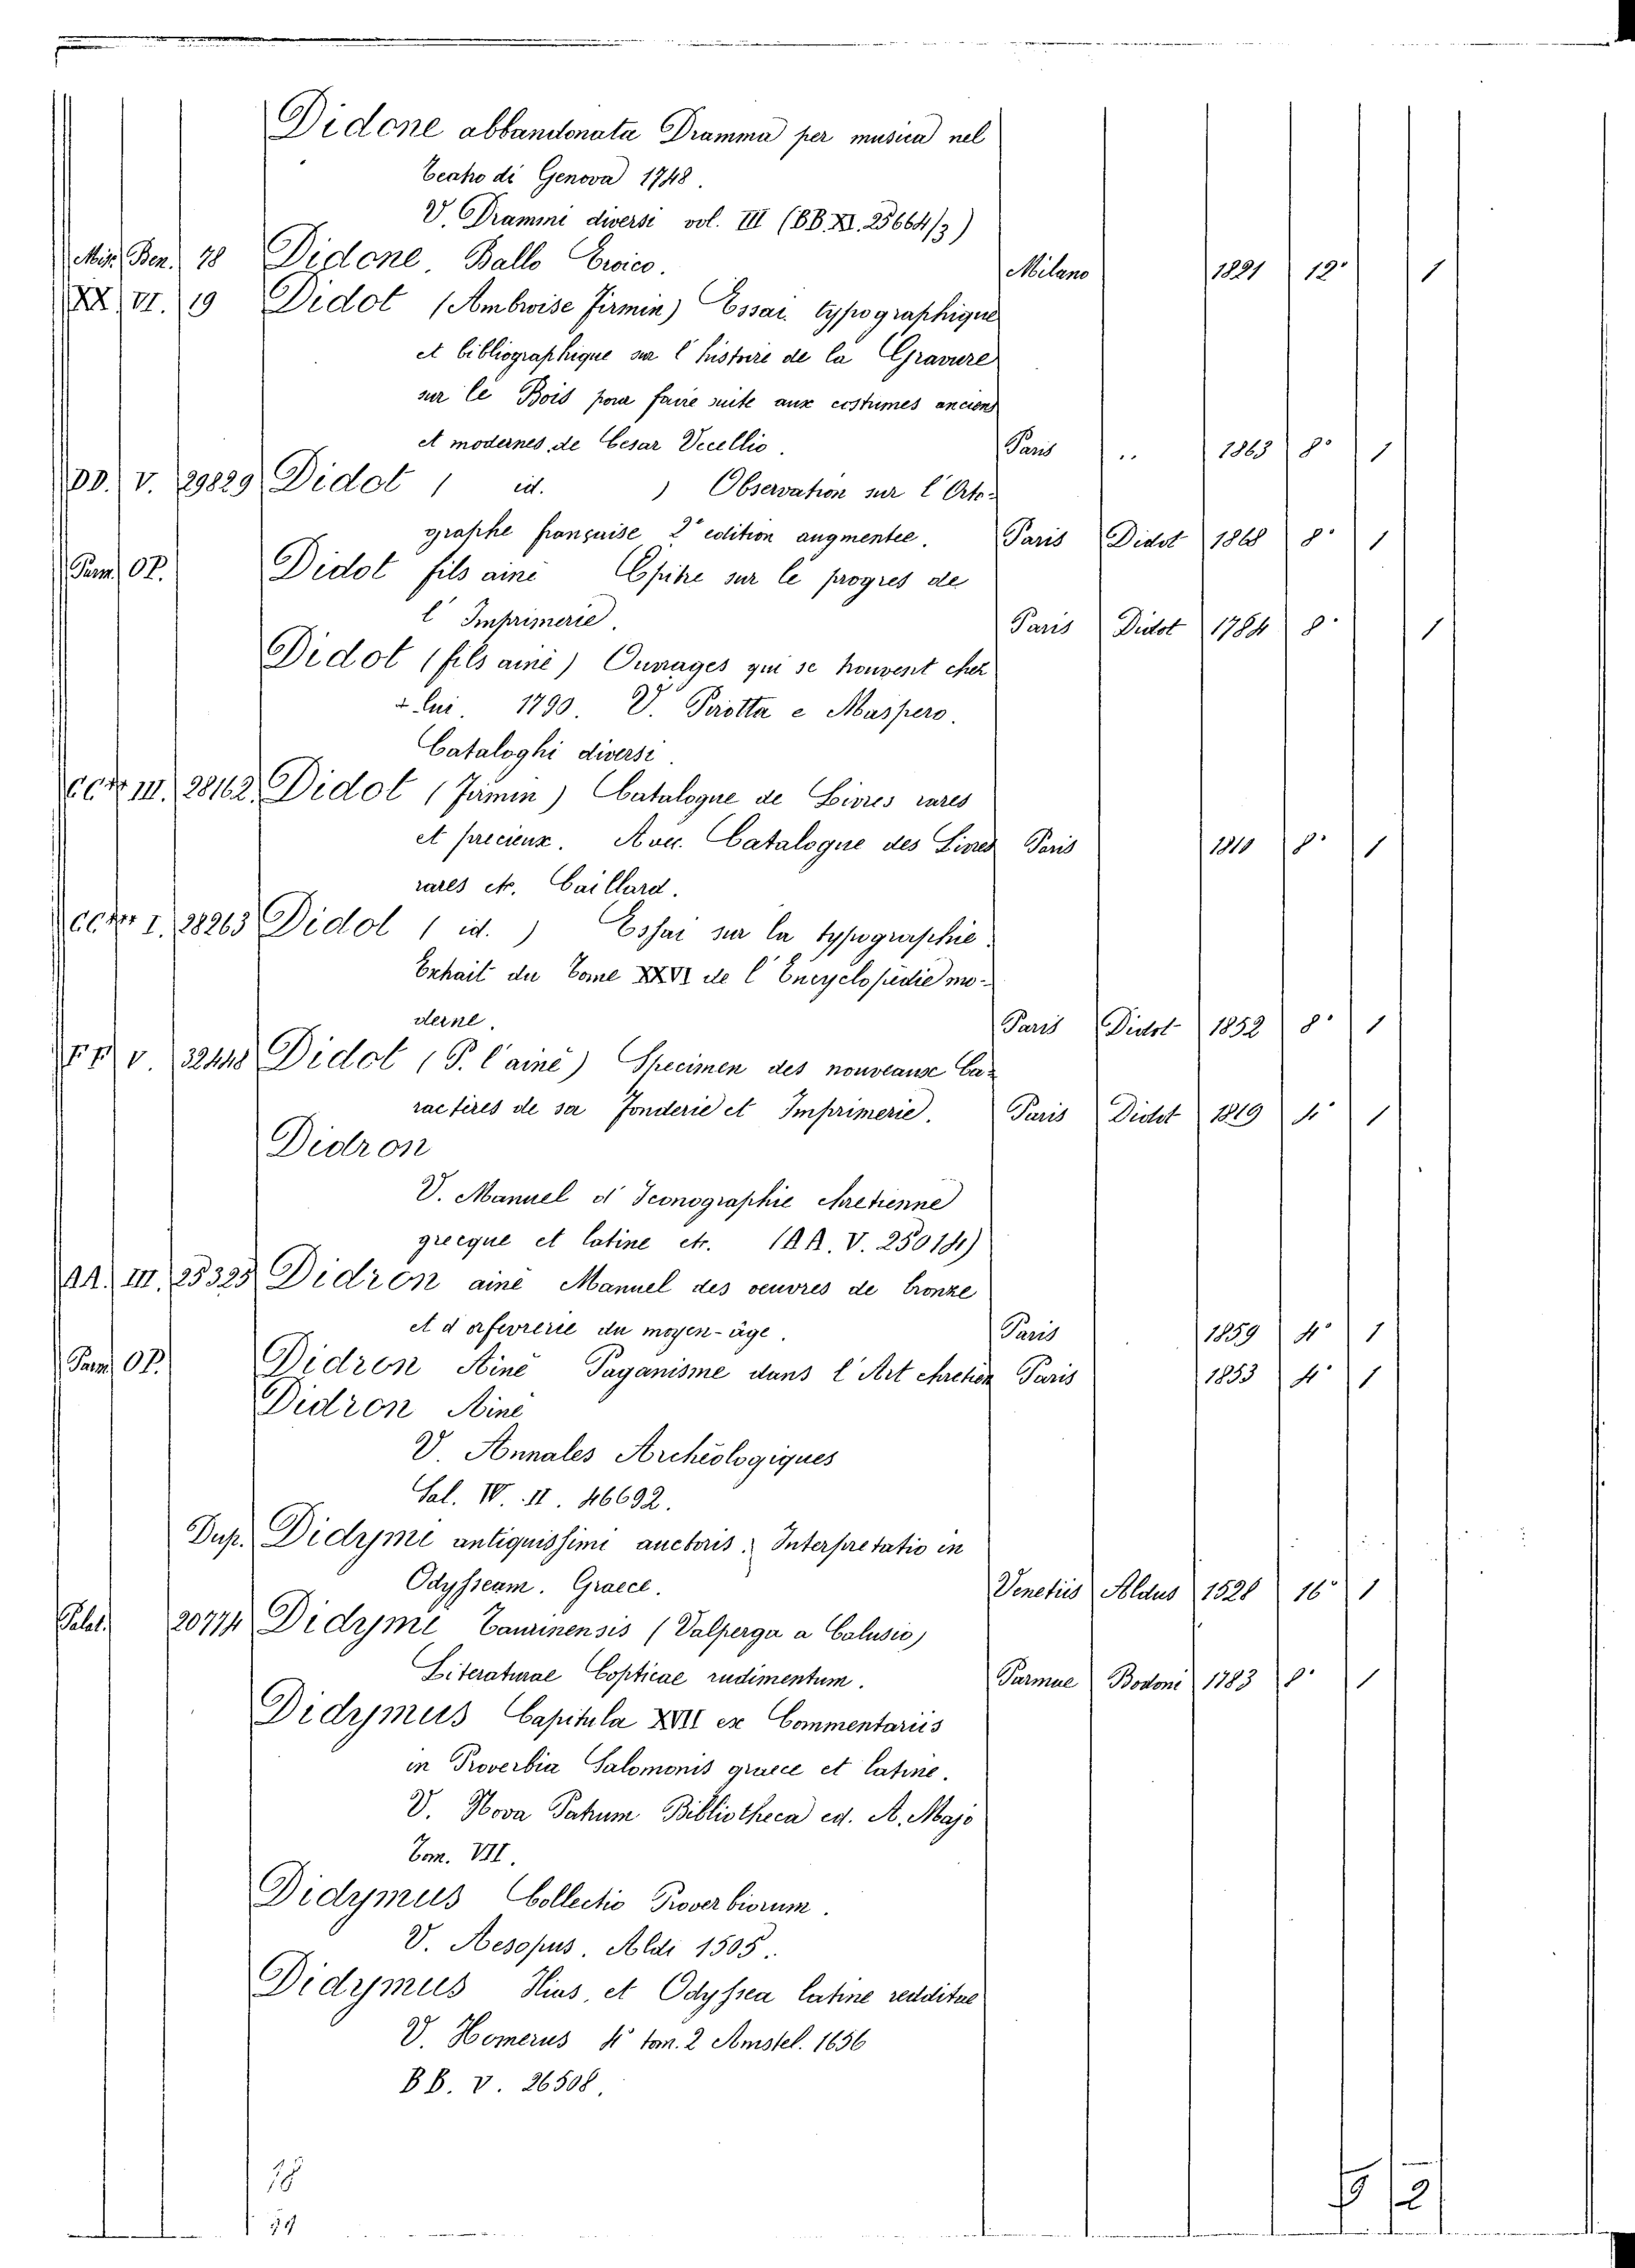 Didone abbandonata Dramma per musica nel
Teatro di Genova 1748.
V. Drammi diversi vol. III (BB. XI. 25664/3)
Mis. Ben. 78 Didone. Ballo Eroico. Milano 1821 12° 1
XX VI. 19 Didot (Ambroise Firmin) Essai typographique
et bibliographique sur l'histoire de la Gravure
sur le Bois pour faire suite aux costumes anciens
et modernes de Cesar Vecellio. Paris .. 1863 8° 1
DD. V. 29829 Didot ( id. ) Observation sur l'Orto-
graphe française 2e edition augmentée. Paris Didot 1868 8° 1
Parm. Didot fils ainé Epitre sur le progres de
l'Imprimerie. Paris Didot 1784 8° 1
Didot (fils ainé) Ouvrages qui se trouvent chez
lui. 1790. V. Pirotta e Maspero.
Cataloghi diversi.
III. 28162 Didot (Firmin) Catalogue de Livres rares
et precieux. Avec. Catalogue des Livres Paris 1810 8° 1
rares etc. Caillard.
I. 28263 Didot ( id. ) Essai sur la typographie.
Extrait du Tome XXVI de l'Encyclopédie mo-
derne. Paris Didot 1852 8° 1
FF V. Didot (P. l'ainé) Specimen des nouveaux Ca-
ractères de sa Fonderie et Imprimerie. Paris Didot 1819 4° 1
Didron
V. Manuel d'Iconographie chretienne
grecque et latine etc. (AA. V. 25014)
AA. III. 25325 Didron ainé Manuel des oeuvres de bronze
et d'orfevrerie du moyen-âge. Paris 1859 4° 1
Parm. Didron Ainé Paganisme dans l'Art chretien Paris 1853 4° 1
Didron Ainé
V. Annales Archéologiques
Sal. IV. II. 46692.
Dup. Didymi antiquissimi auctoris. Interpretatio in
Odysseam. Graece. Venetiis Aldus 1528 16° 1
Palat. 20774 Didymi Taurinensis (Valperga a Calusio)
Literaturae Copticae rudimentum. Parmae Bodoni 1783 8° 1
Didymus Capitula XVII ex Commentariis
in Proverbia Salomonis graece et latine.
V. Nova Patrum Bibliotheca ed. A. Majo
Tom. VII.
Didymus Collectio Proverbiorum.
V. Aesopus. Aldi 1505.
Didymus Ilias, et Odyssea latine redditae
V. Homerus 4° tom. 2 Amstel. 1656
BB. V. 26508.
18
2